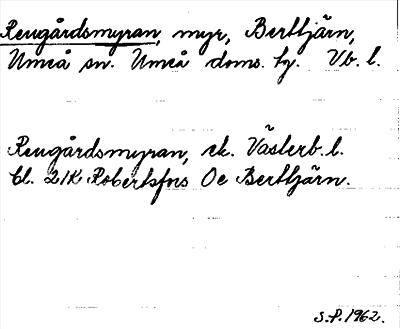 Rengårdsmyran, myr, Berttjärn,
Umeå sn. Umeå doms. hg. Vb. l.
Rengårdsmyran, ek. Västerb. l.
Bl. 21K Robertsfors Oe Berttjärn.
S.P. 1962.